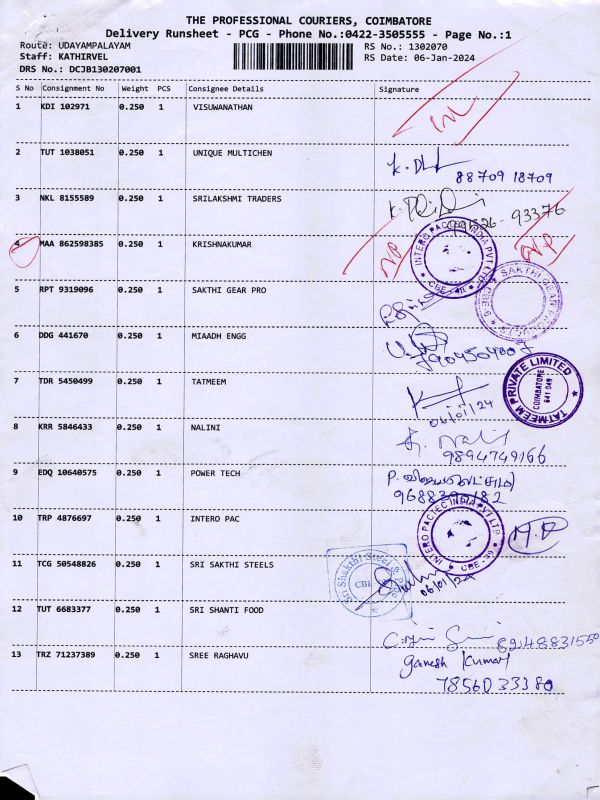 THE PROFESSIONAL COURIERS, COIMBATORE
Delivery Runsheet - PCG - Phone No.:0422-3505555 - Page No.:1
Route: UDAYAMPALAYAM
RS No.: 1302070
Staff: KATHIRVEL
RS Date: 06-Jan-2024
DRS No.: DCJB130207001
S No Consignment No Weight PCS Consignee Details Signature
1 KDI 102971 0.250 1 VISUWANATHAN
2 TUT 1038051 0.250 1 UNIQUE MULTICHEN
88709 18709
3 NKL 8155589 0.250 1 SRILAKSHMI TRADERS
93376
4 MAA 862598385 0.250 1 KRISHNAKUMAR
INTERO PACTEC INDIA PVT LTD
CBE
5 RPT 9319096 0.250 1 SAKTHI GEAR PRO
SAKTHI GEAR PRODUCTS
6 DDG 441670 0.250 1 MIAADH ENGG
7 TDR 5450499 0.250 1 TATMEEM
TATMEEM PRIVATE LIMITED
COIMBATORE
641 049
06/01/24
8 KRR 5846433 0.250 1 NALINI
9894749166
9 EDQ 10640575 0.250 1 POWER TECH
10 TRP 4876697 0.250 1 INTERO PAC
INTERO PACTEC INDIA PVT LTD
CBE
11 TCG 50548826 0.250 1 SRI SAKTHI STEELS
Sri Shakthi Steel
CBE
06/01/24
12 TUT 6683377 0.250 1 SRI SHANTI FOOD
13 TRZ 71237389 0.250 1 SREE RAGHAVU
Ganesh Kumar
78560 33380